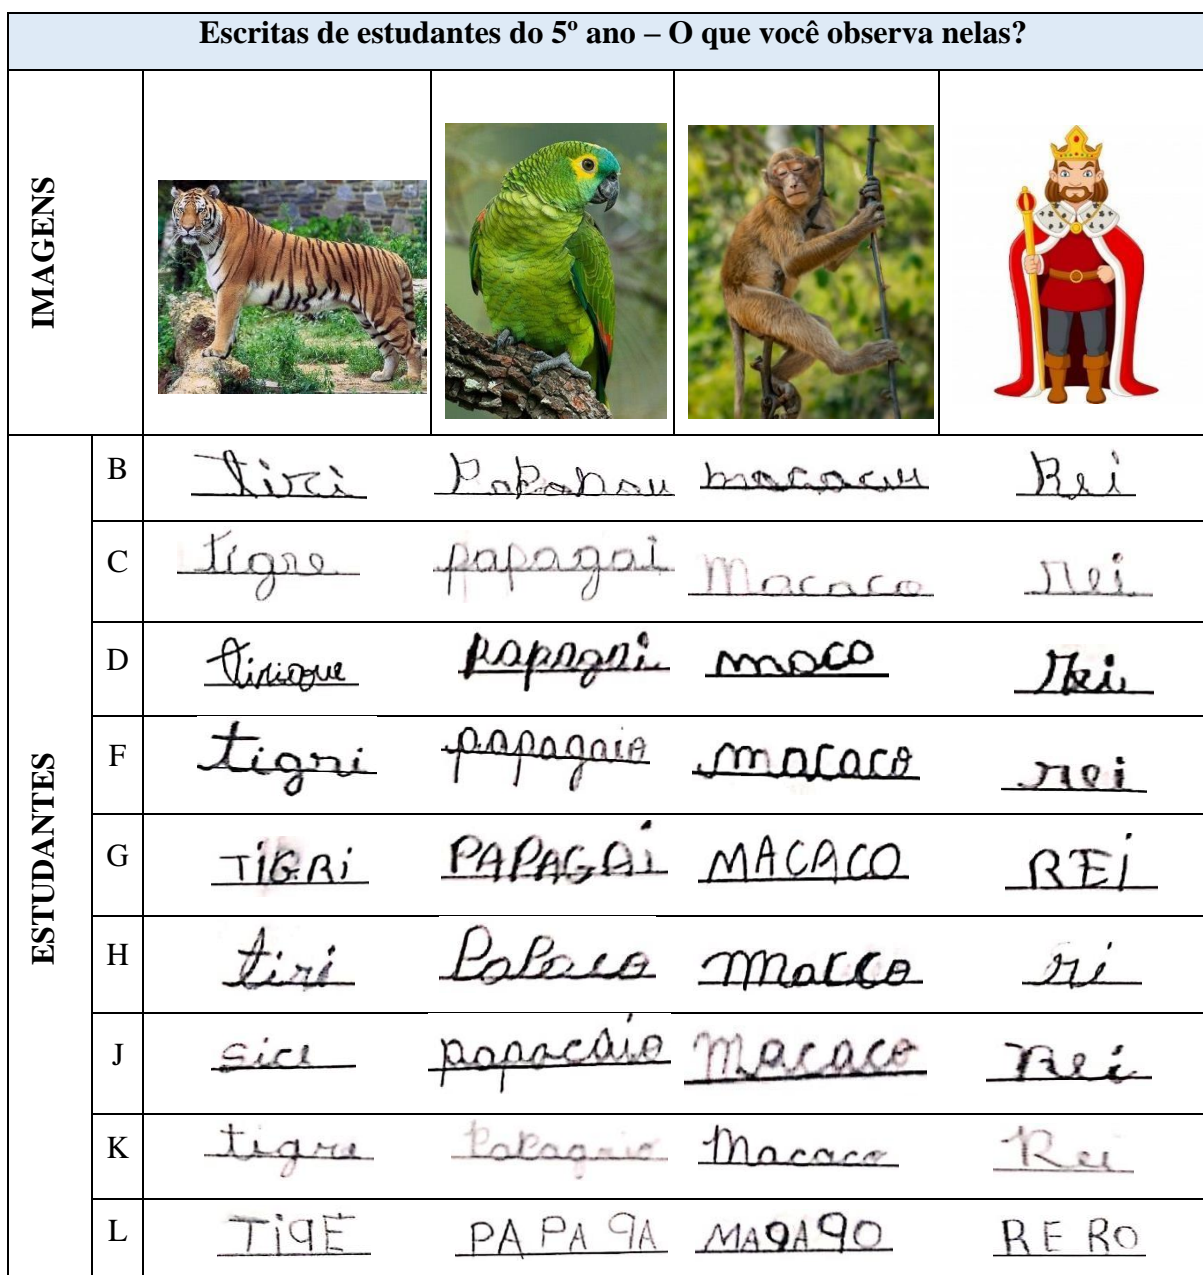 Escritas de estudantes do 5º ano – O que você observa nelas?
IMAGENS
ESTUDANTES
B tiri macacu Rei
C tigre papagai Macaco rei
D tirigue papagai maco rei
F tigri papagaio macaco rei
G TiGRi PAPAGAi MACACO REi
H tiri PaPaco Macco ri
J sice papacaio Macaco Rei
K tigre PaPagaio Macaco Rei
L TiqE PA PA qA MAqAqO RE RO